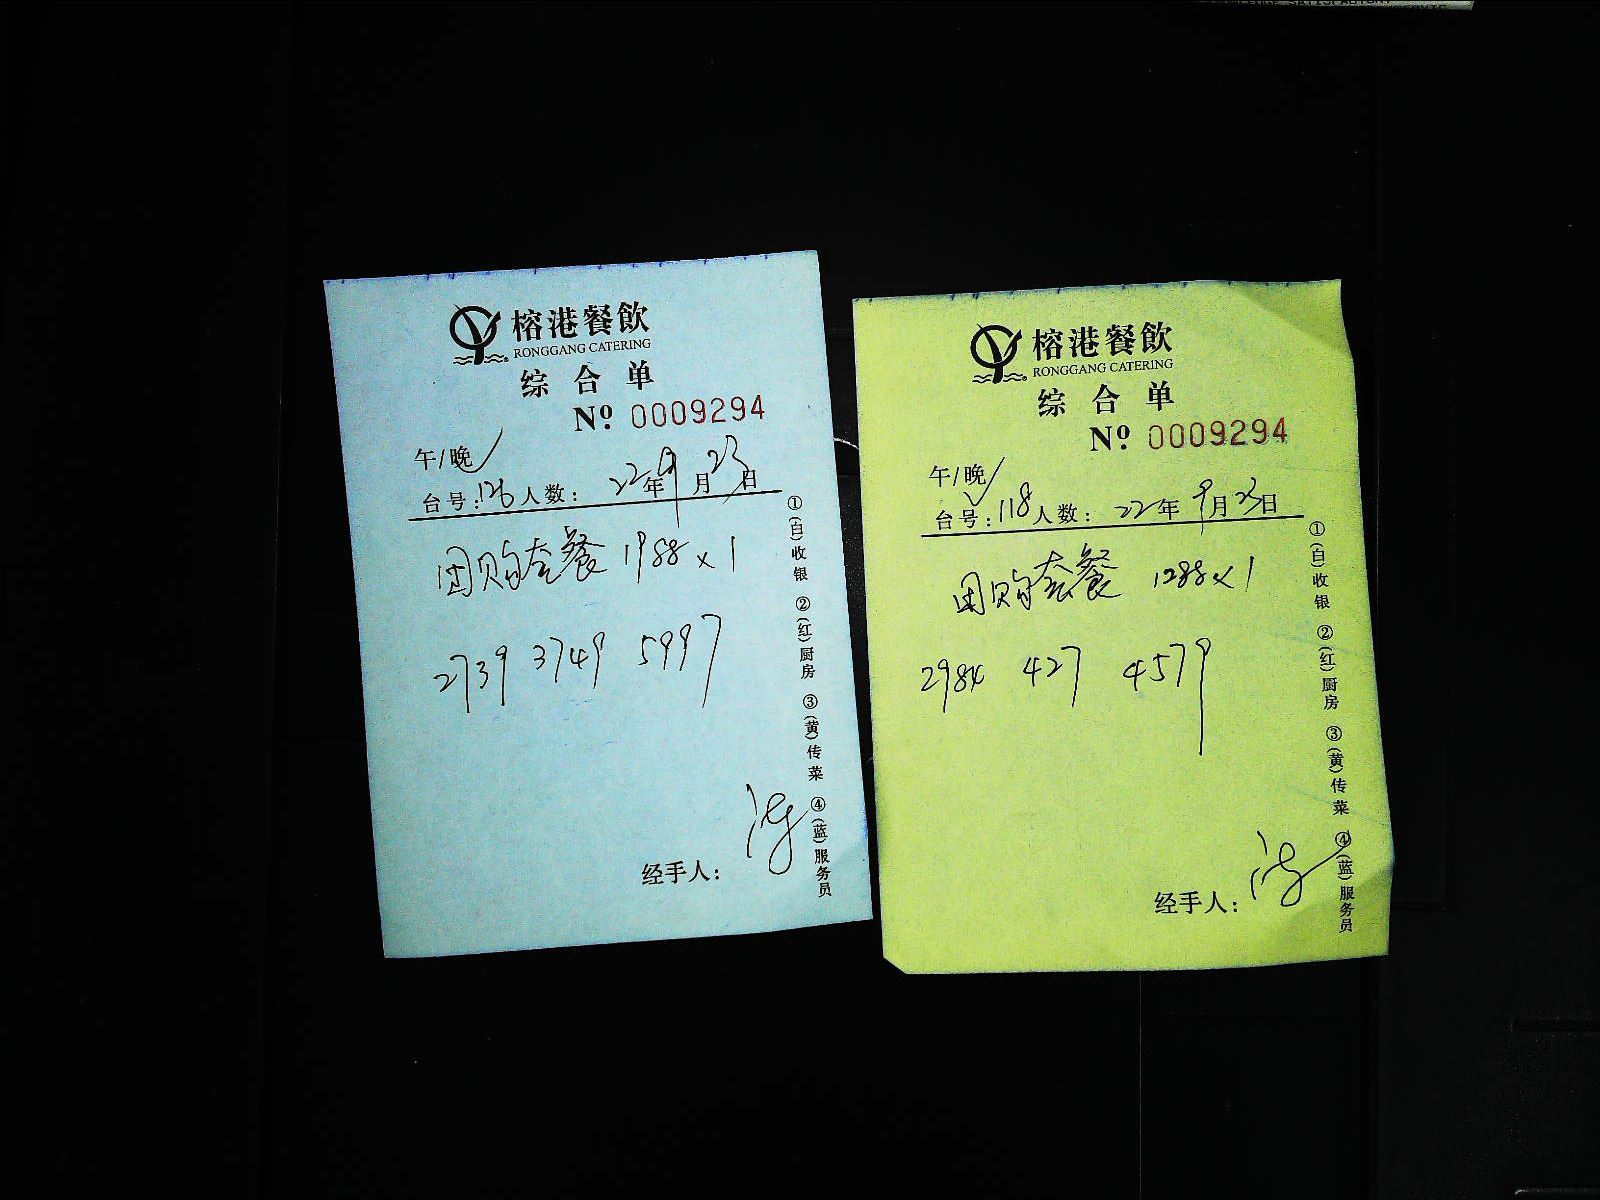 榕港餐飲
RONGGANG CATERING
综合单
Nº 0009294
午/晚
台号:126 人数: 22年9月23日
团购套餐 1988 x 1
2739 3749 5997
经手人:
①(白)收银 ②(红)厨房 ③(黄)传菜 ④(蓝)服务员
榕港餐飲
RONGGANG CATERING
综合单
Nº 0009294
午/晚
台号:118 人数: 22年9月23日
团购套餐 1288 x 1
2984 427 4579
经手人:
①(白)收银 ②(红)厨房 ③(黄)传菜 ④(蓝)服务员